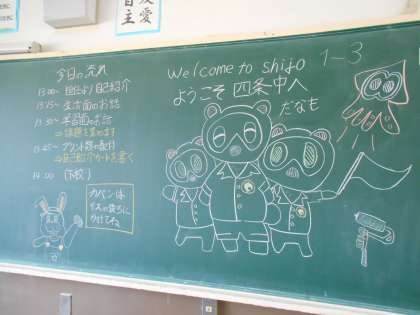 友愛
自主
今日の流れ
13:00~ 担任より自己紹介
13:15~ 生活面のお話
13:30~ 学習面のお話
⇒課題を集めます
13:45~ プリント類の配付
⇒自己紹介カードを書く
14:00 (下校)
カバンは
イスの後ろに
かけてね。
Welcome to shijo
ようこそ 四条中へ
だなも
1-3